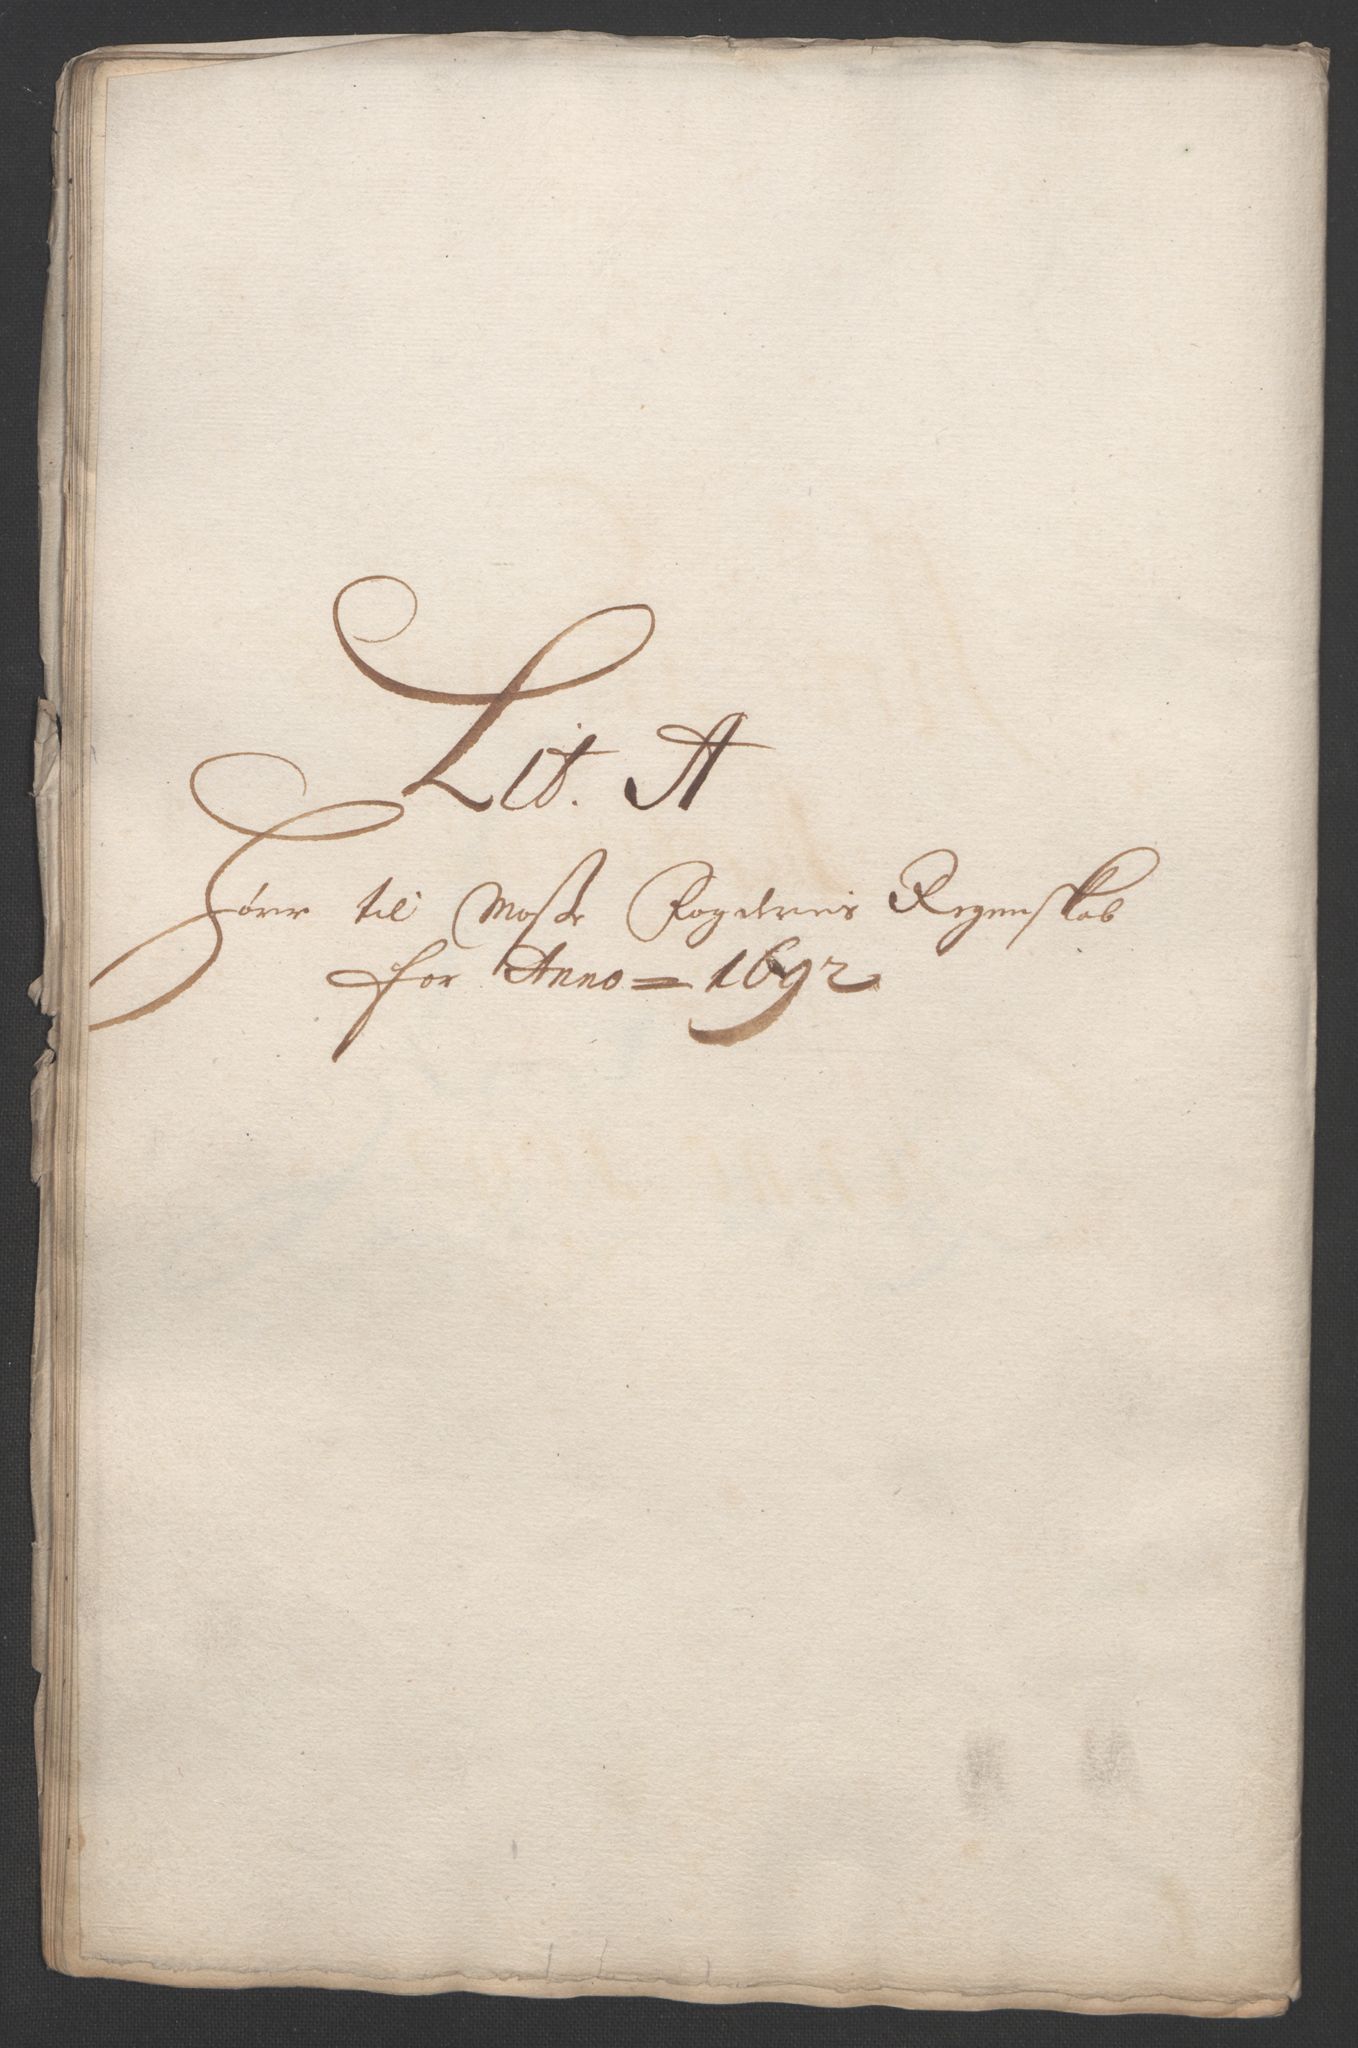 Lit. A
Hörer til Mosse Fogderies Regenskab
for Anno = 1692